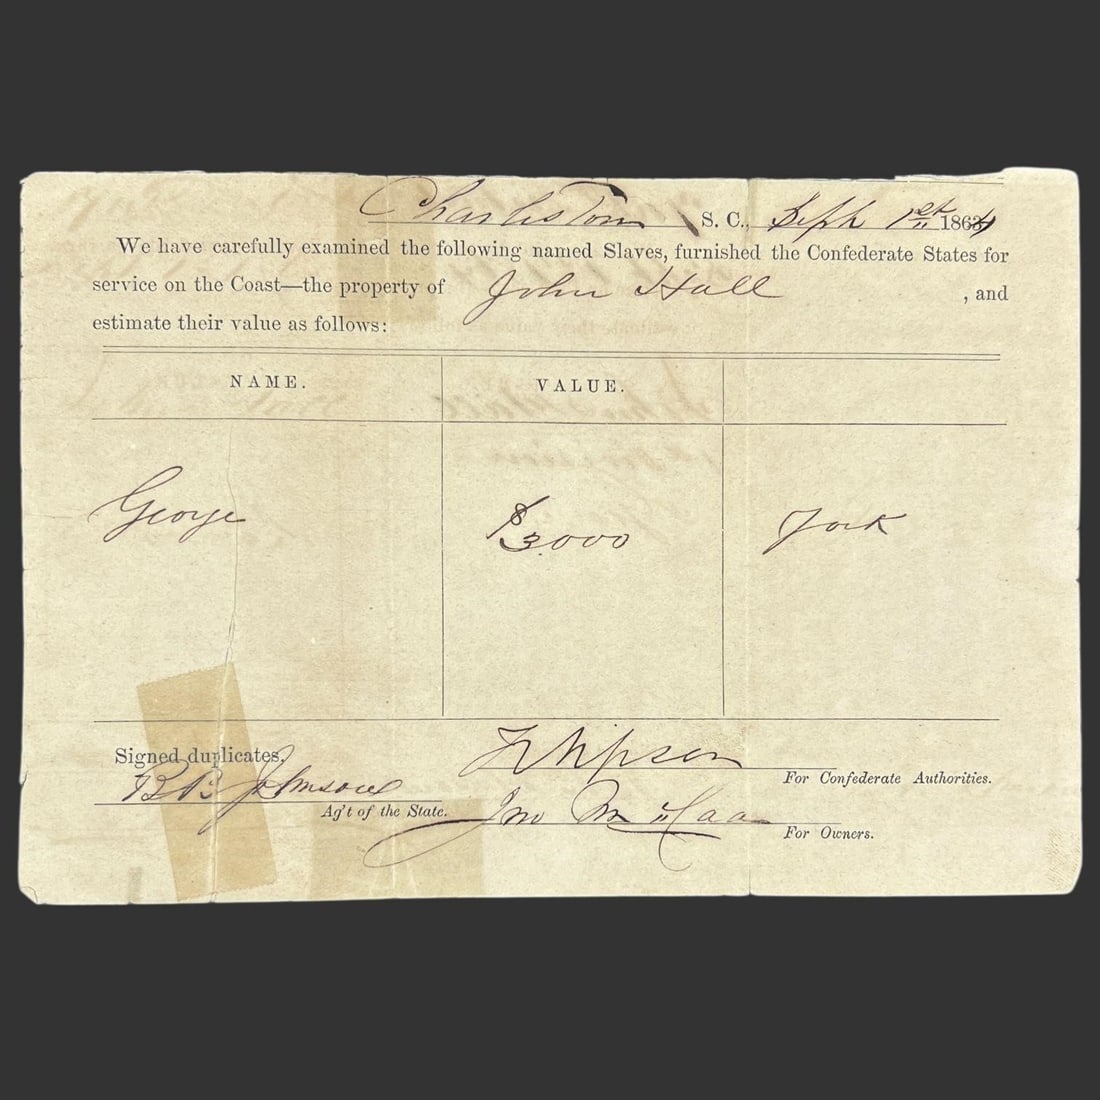 Charleston S. C., Sept 1st 1864
We have carefully examined the following named Slaves, furnished the Confederate States for
service on the Coast—the property of John Hall , and
estimate their value as follows:
NAME. VALUE.
George $3.000 York
Signed duplicates,
For Confederate Authorities.
B B Johnson
Ag't of the State.
Jno
For Owners.